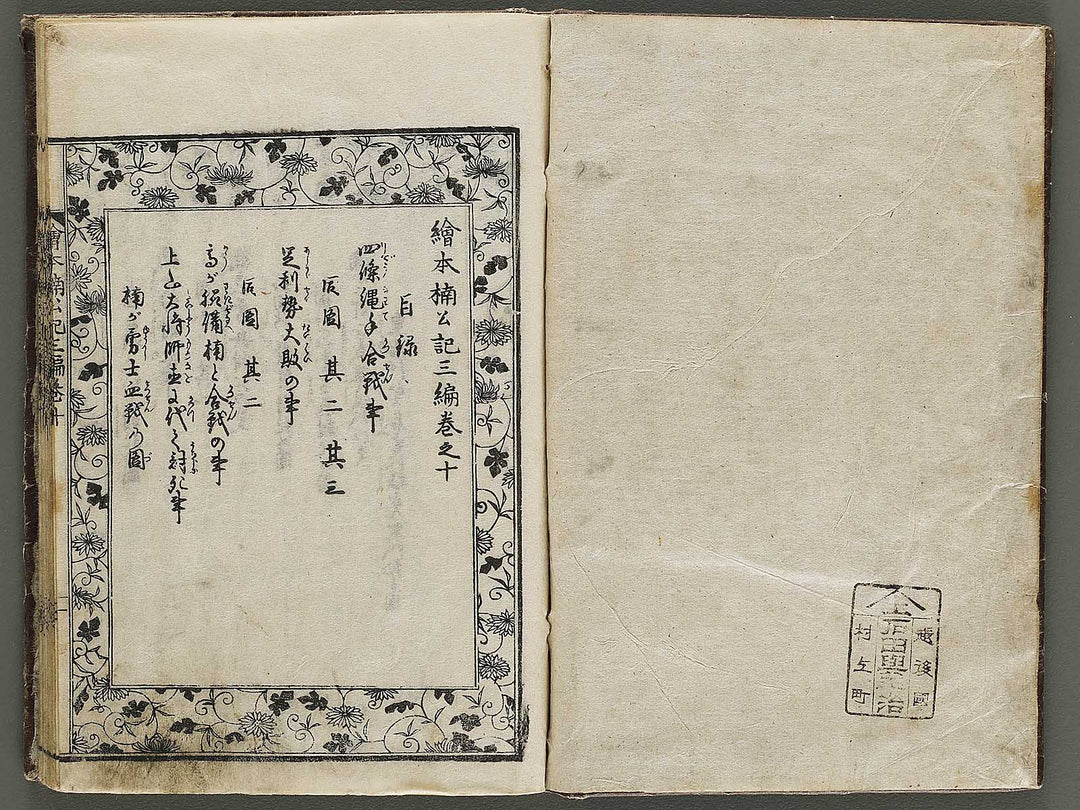 繪本楠公記三編巻之十
目録
四條縄手合戦事
仝圖 其二 其三
足利勢大敗の事
仝圖 其二
高が後備楠と合戦の事
上山大将師直に代て討死事
楠が勇士血戦の圖
繪本楠公記三編巻十
越後國
石田與治
村上町